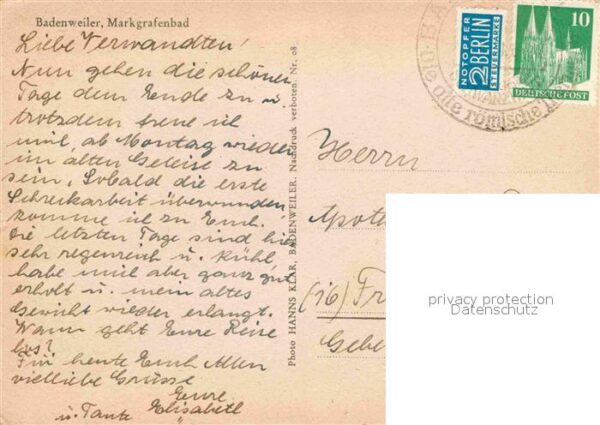 Badenweiler, Markgrafenbad
Liebe Verwandten!
Nun gehen die schönen
Tage dem Ende zu u.
trotzdem freue ich
mich, ab Montag wieder
im alten Geleise zu
sein. Sobald die erste
Schreibarbeit überwunden
komme ich zu Euch.
Die letzten Tage sind hier
sehr regenreich u. kühl,
habe mich aber ganz gut
erholt u. mein altes
Gewicht wieder erlangt.
Wann geht Eure Reise
los?
Für heute Euch Allen
vielliebe Grüsse
Eure
u. Tante Elisabeth
Photo HANNS KLAR, BADENWEILER. Nachdruck verboten. Nr. 08
NOTOPFER
2 BERLIN
STEUERMARKE
10
DEUTSCHE POST
alte römische
Herrn
Apoth
(16) Fr
Gebe
privacy protection
Datenschutz